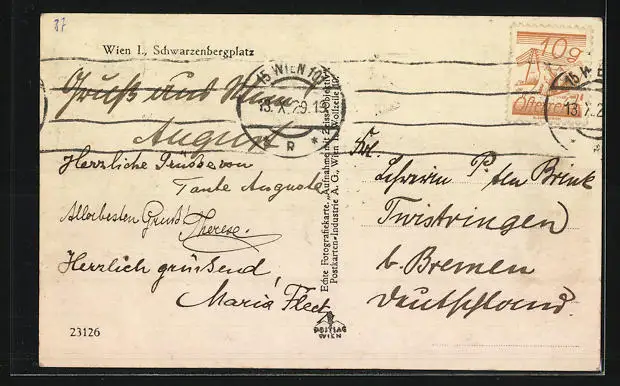 87
Wien I., Schwarzenbergplatz
Gruß aus Wien
August
Herzliche Grüße von
Tante Auguste
Allerbesten Gruß!
Therese.
Herzlich grüssend,
Maria Fleck
23126
Echte Fotografiekarte, „Aufnahme mit Zeiss-Objektiv“
Postkarten-Industrie A. G., Wien I., Wollzeile
POSTIAG
WIEN
15 WIEN 10
13.X.29.19
R *
10g
Österreich
15 W
13.X.2
Frl.
Lehrerin P. ten Brink
Twistringen
b. Bremen
Deutschland.